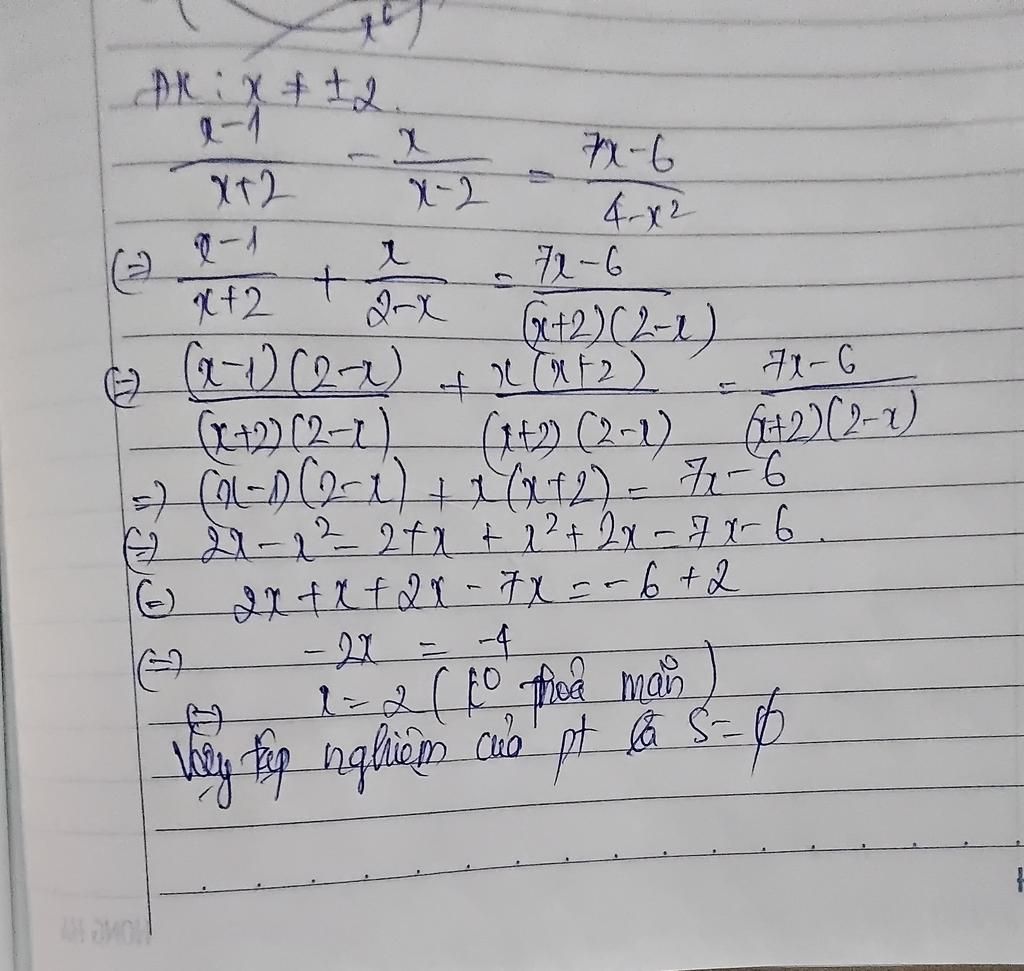 x⁶)
ĐK : x ≠ ±2.
(x-1)/(x+2) - x/(x-2) = (7x-6)/(4-x²)
(=) (x-1)/(x+2) + x/(2-x) = (7x-6)/((x+2)(2-x))
(=) ((x-1)(2-x))/((x+2)(2-x)) + (x(x+2))/((x+2)(2-x)) = (7x-6)/((x+2)(2-x))
=) (x-1)(2-x) + x(x+2) = 7x-6
(=) 2x - x² - 2 + x + x² + 2x = 7x - 6.
(=) 2x + x + 2x - 7x = -6 + 2
(=) -2x = -4
(=) x = 2 (k⁰ thoả mãn)
Vậy tập nghiệm của pt là S = ∅
HONG HA